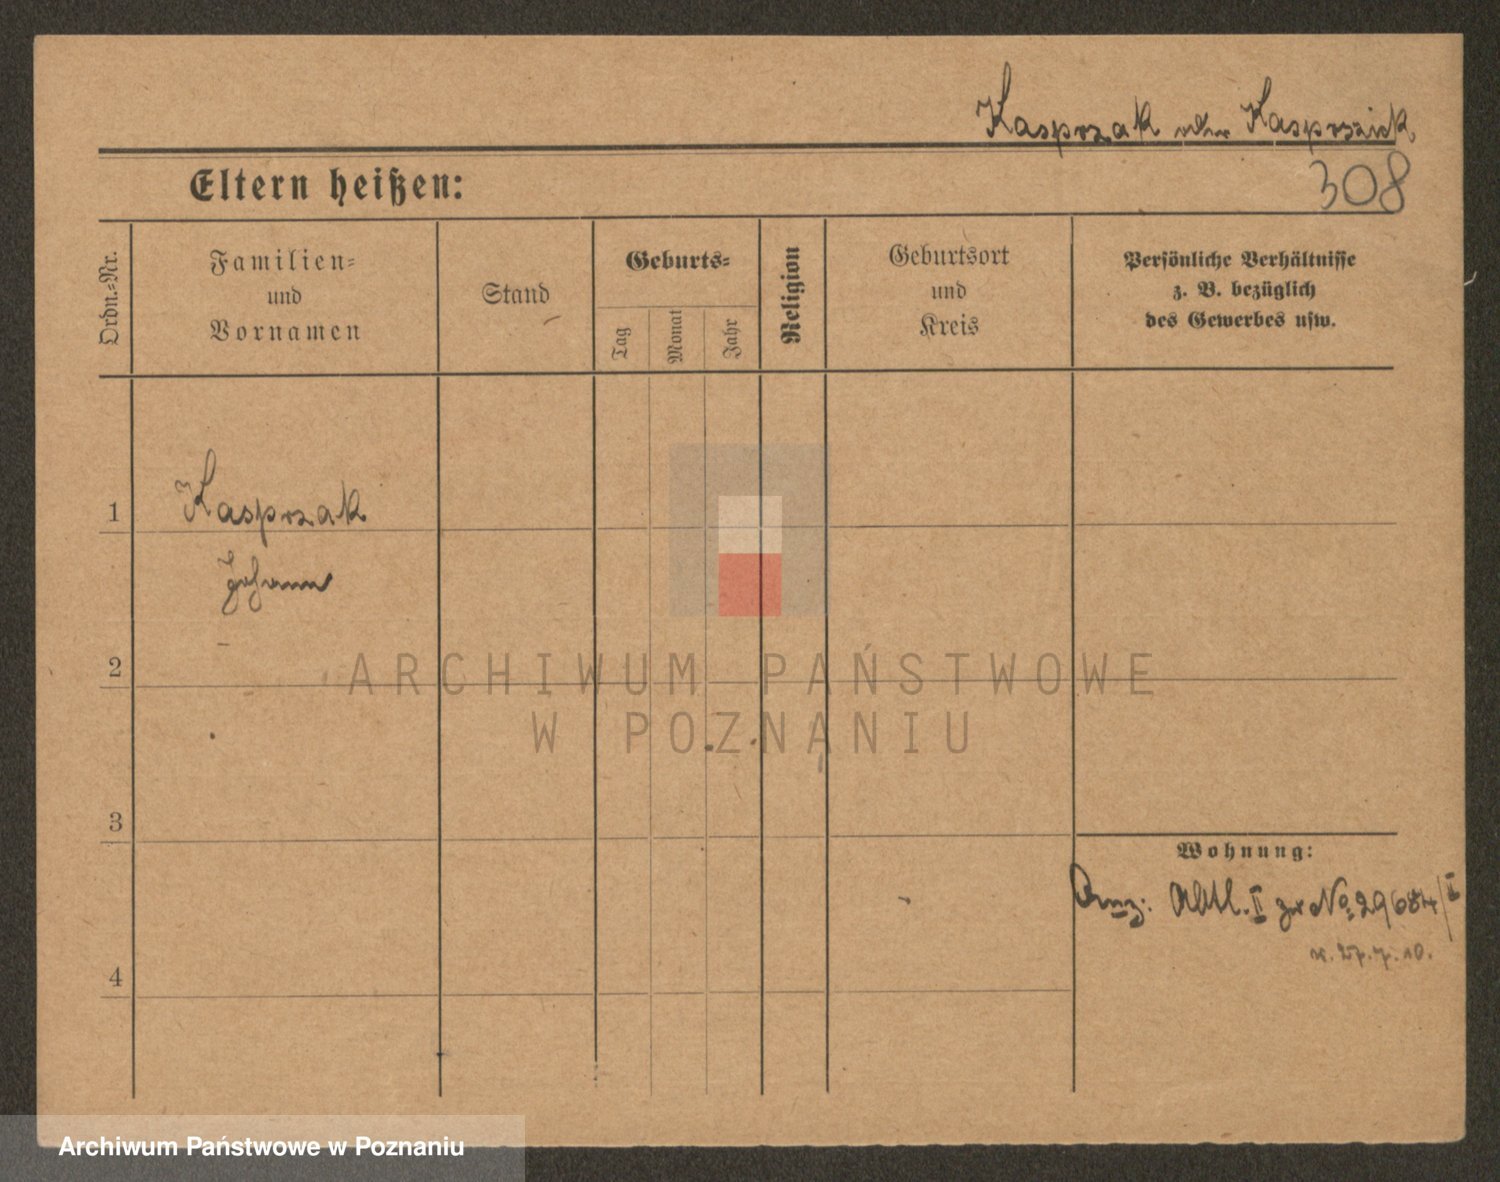 Kasprzak oder Kasprzick
Eltern heißen:
308
Ordn.=Nr.
Familien=
und
Vornamen
Stand
Geburts=
Tag
Monat
Jahr
Religion
Geburtsort
und
Kreis
Persönliche Verhältnisse
z. B. bezüglich
des Gewerbes usw.
1
Kasprzak
Johann
2
ARCHIWUM PAŃSTWOWE
W POZNANIU
3
Wohnung:
Anz: Abtl. II zu No. 29684/I
27.7.10.
4
Archiwum Państwowe w Poznaniu